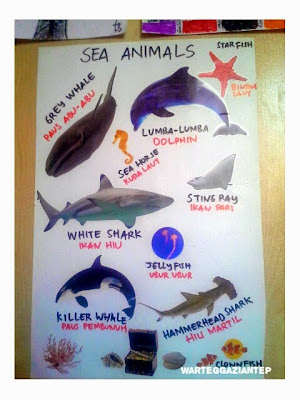 SEA ANIMALS
STARFISH
BINTANG
LAUT
GREY WHALE
PAUS ABU-ABU
LUMBA-LUMBA
DOLPHIN
SEA HORSE
KUDA LAUT
STING RAY
IKAN PARI
WHITE SHARK
IKAN HIU
JELLYFISH
UBUR UBUR
KILLER WHALE
PAUS PEMBUNUH
HAMMERHEAD SHARK
HIU MARTIL
CLOWNFISH
WARTEGGAZIANTEP